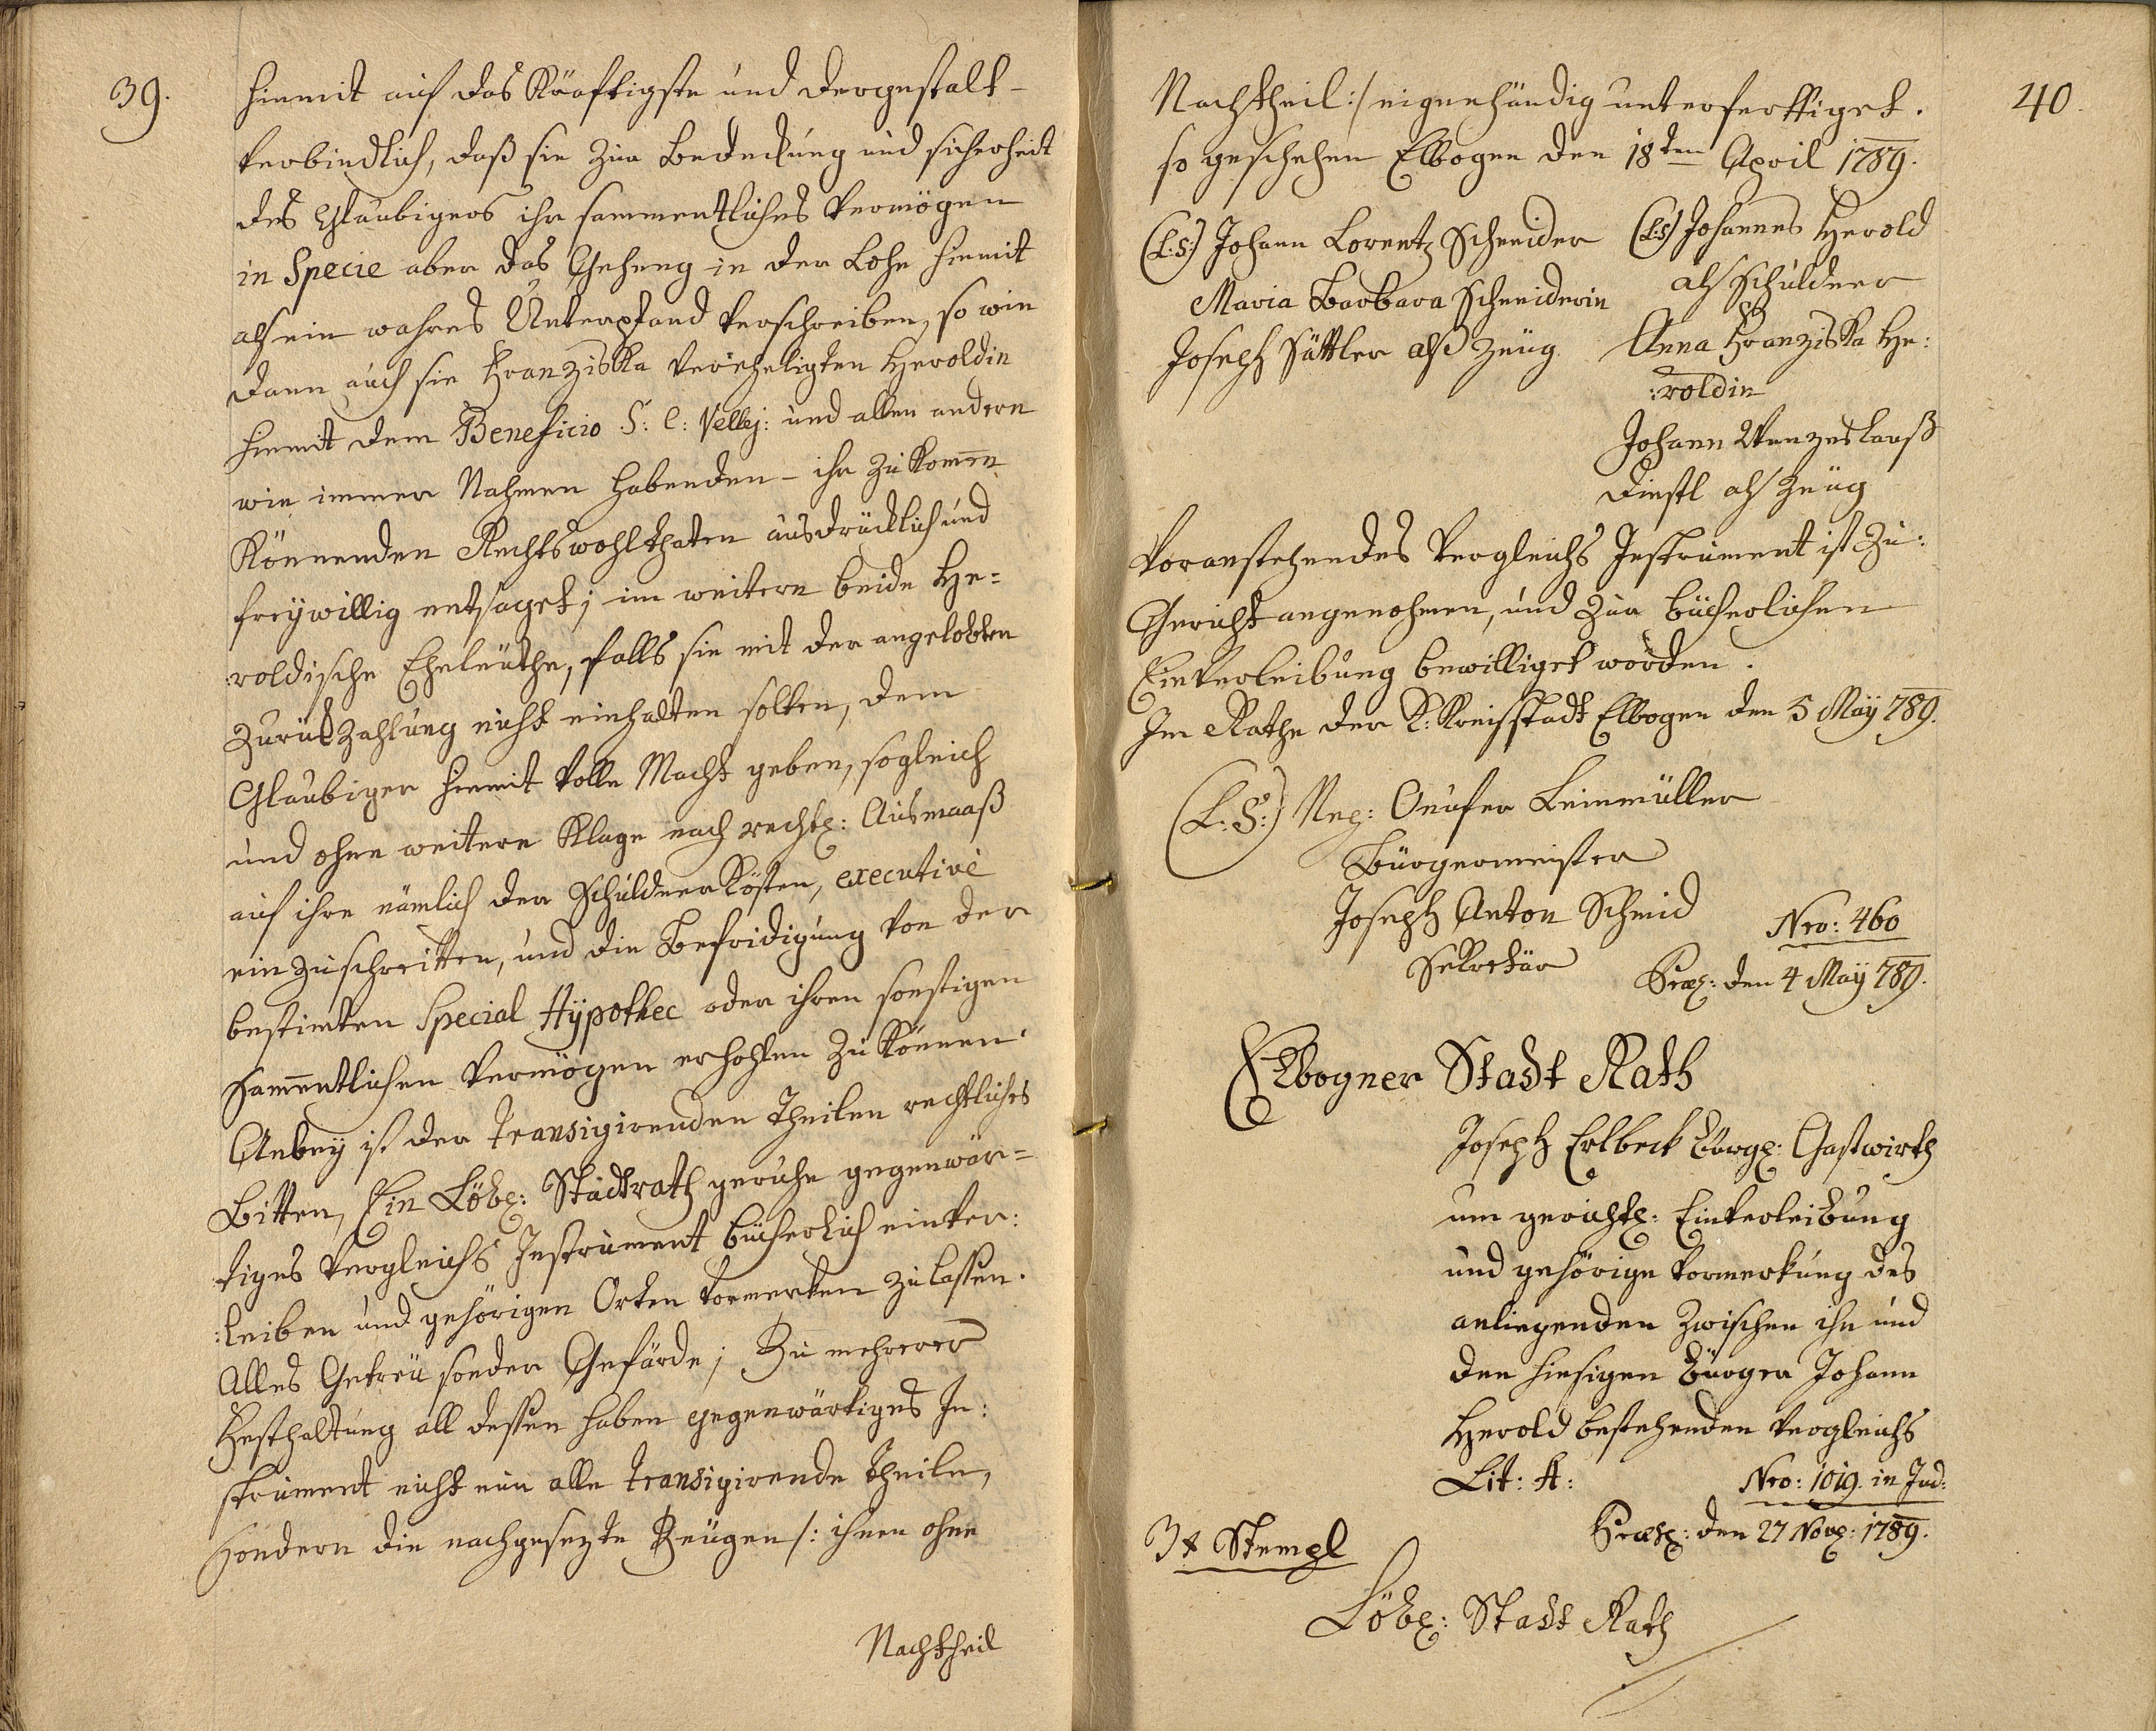 39.
hiemit auf das Kräftigste und dergestalt-
verbindlich, daß sie zur Bedeckung und sicherheit
des Glaubigers ihr sammentliches Vermögen
in Specie aber das Geheng in der Lohe hiemit
als ein wahres Unterpfand verschreiben, so wie
dann auch sie Franziska verehligten Heroldin
hiemit dem Beneficio S: C: Vellej: und allen andern
wie immer Nahmen habenden - ihr zu komen
Könnenden Rechtswohlthaten ausdrücklich und
freÿwillig entsaget; im weitern beide He=
:roldische Eheleüthe, falls sie mit der angelobten
Zurückzahlung nicht einhalten solten, dem
Glaubiger hiemit volle Macht geben, sogleich
und ohne weitere Klage nach rechtl: Ausmaaß
auf ihre nämlich der Schuldner Kösten, executivè
einzuschreitten, und die Befridigung von der
bestimten Special Hÿpothec oder ihren sonstigen
sammentlichen Vermögen erhohlen zu können.
Anbeÿ ist der transigirenden Theilen rechtliches
Bitten, Ein Löbl: Stadtrath geruhe gegenwär=
:tiges Vergleichs Instrument bücherlich einver:
:leiben und gehörigen Orten vormerken zu lassen.
Alles Getreü sonder Gefärde; Zu mehrerer
Festhaltung all dessen haben gegenwärtiges In:
strument nicht nur alle transigirende Theile,
sondern die nachgesezte Zeügen /: ihnen ohne
Nachtheil
40.
Nachtheil :/ eigenhändig unterferttiget.
so geschehen Elbogen den 18ten April 1789.
(L:S:) Johann Lorentz Schneider (L:S:) Johannes Herold
als Schuldner
Maria Barbara Schneiderin
Joseph Sättler alß Zeüg Anna Franziska He:
:roldin
Johann Wenzeslauß
Diestl als Zeüg
Voranstehendes Vergleichs Instrument ist zu:
Gericht angenohmen, und zur bücherlichen
Einverleibung bewilliget worden.
Im Rathe der K: Kreisstadt Elbogen den 5 Maÿ 789.
(L:S:) Neg: Onufer Leinmüller
Bürgermeister
Joseph Anton Schmid
Sekretär
Nro: 460
Præs: den 4 Maÿ 789.
Elbogner Stadt Rath
Joseph Erlbeck bürgl: Gastwirth
um gerichtl: Einverleibung
und gehörige Vormerkung des
anliegenden zwischen ihn und
den hiesigen Bürger Johann
Herold bestehenden Vergleichs
Lit: A: Nro: 1019. in Jud:
Præs: den 27 Nov: 1789.
3 x Stempl
Löbl: Stadt Rath